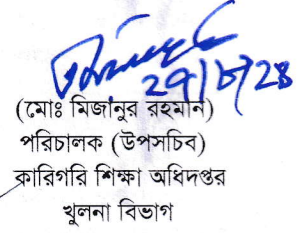 ২৭/৮/২৪
(মোঃ মিজানুর রহমান)
পরিচালক (উপসচিব)
কারিগরি শিক্ষা অধিদপ্তর
খুলনা বিভাগ